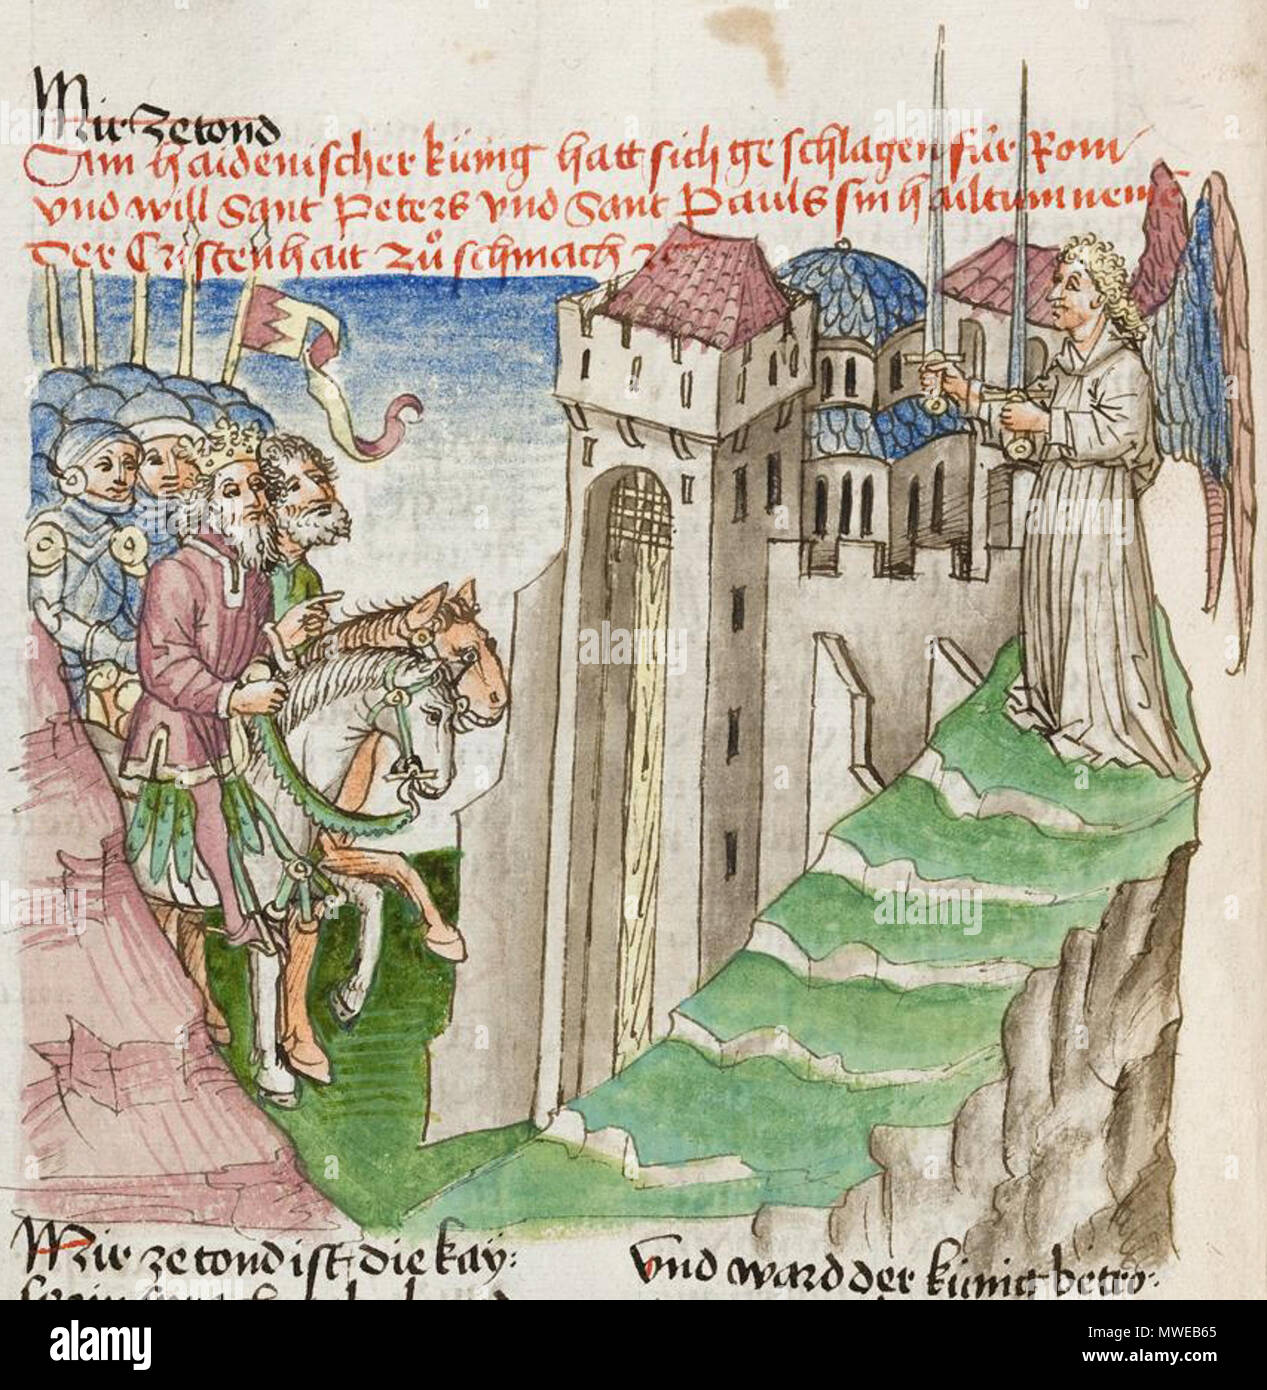 Mir zetond
Ain haidenischer küng hatt sich geschlagen für Rom
vnd will Sant Peters vnd Sant Pauls hailtum nemē
der Cristenhait zů schmach
Mir zetond ist die kay:
vnd ward der künig betro:
alamy
Image ID: MWEB65
www.alamy.com